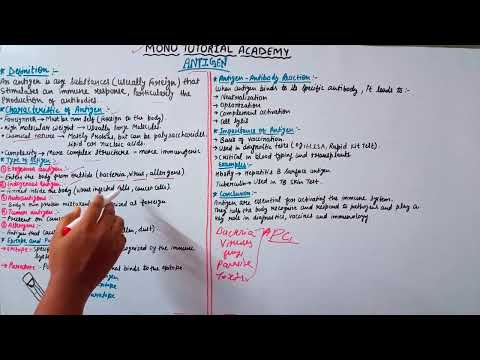 MONU TUTORIAL ACADEMY
ANTIGEN
* Definition :-
An antigen is any substances (usually foreign) that
stimulates an immune response, particularly the
production of antibodies.
* Characteristic of Antigen :-
Must be non self (foreign to the body)
High molecular weight → Usually large molecules
Chemical nature → Mostly Proteins, but can be polysaccharides,
lipid or nucleic acids.
Complexity → More complex structures - more immunogenic
* Types of Antigen :-
Exogenous Antigen
Enters the body from outside (bacteria, virus, allergens)
Endogenous Antigen
inside the body (virus infected cells, cancer cells).
Autoantigens
Body's own protein as foreign
Tumor Antigen
Present on
Allergens
Antigen that dust)
* Epitope and
Epitope by the immune
that binds to the epitope
* Antigen-Antibody Reaction :-
When antigen binds to its specific antibody, it leads to :-
→ Neutralization
→ Opsonization
→ Complement activation
→ Cell lysis
* Importance of Antigen :-
→ Basis of vaccination
→ Used in diagnostic tests (eg: ELISA, Rapid kit test).
→ Critical in blood typing and transplants
* Example :-
HBsAg → Hepatitis B Surface antigen
Tuberculin → Used in TB Skin Test.
* Conclusion :-
Antigen are essential for activating the immune system.
They help the body recognize and respond to pathogens and play a
key role in diagnostics, vaccines and immunology
Bacteria
Viruses
fungi
Toxins